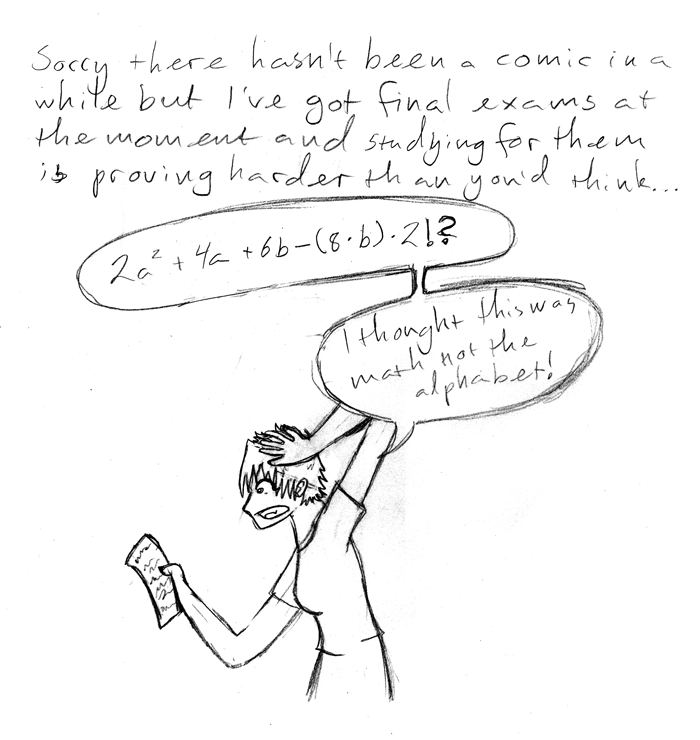 Sorry there hasn't been a comic in a
while but I've got final exams at
the moment and studying for them
is proving harder than you'd think...
2a² + 4a + 6b - (8·b)·2!?
I thought this was
math not the
alphabet!